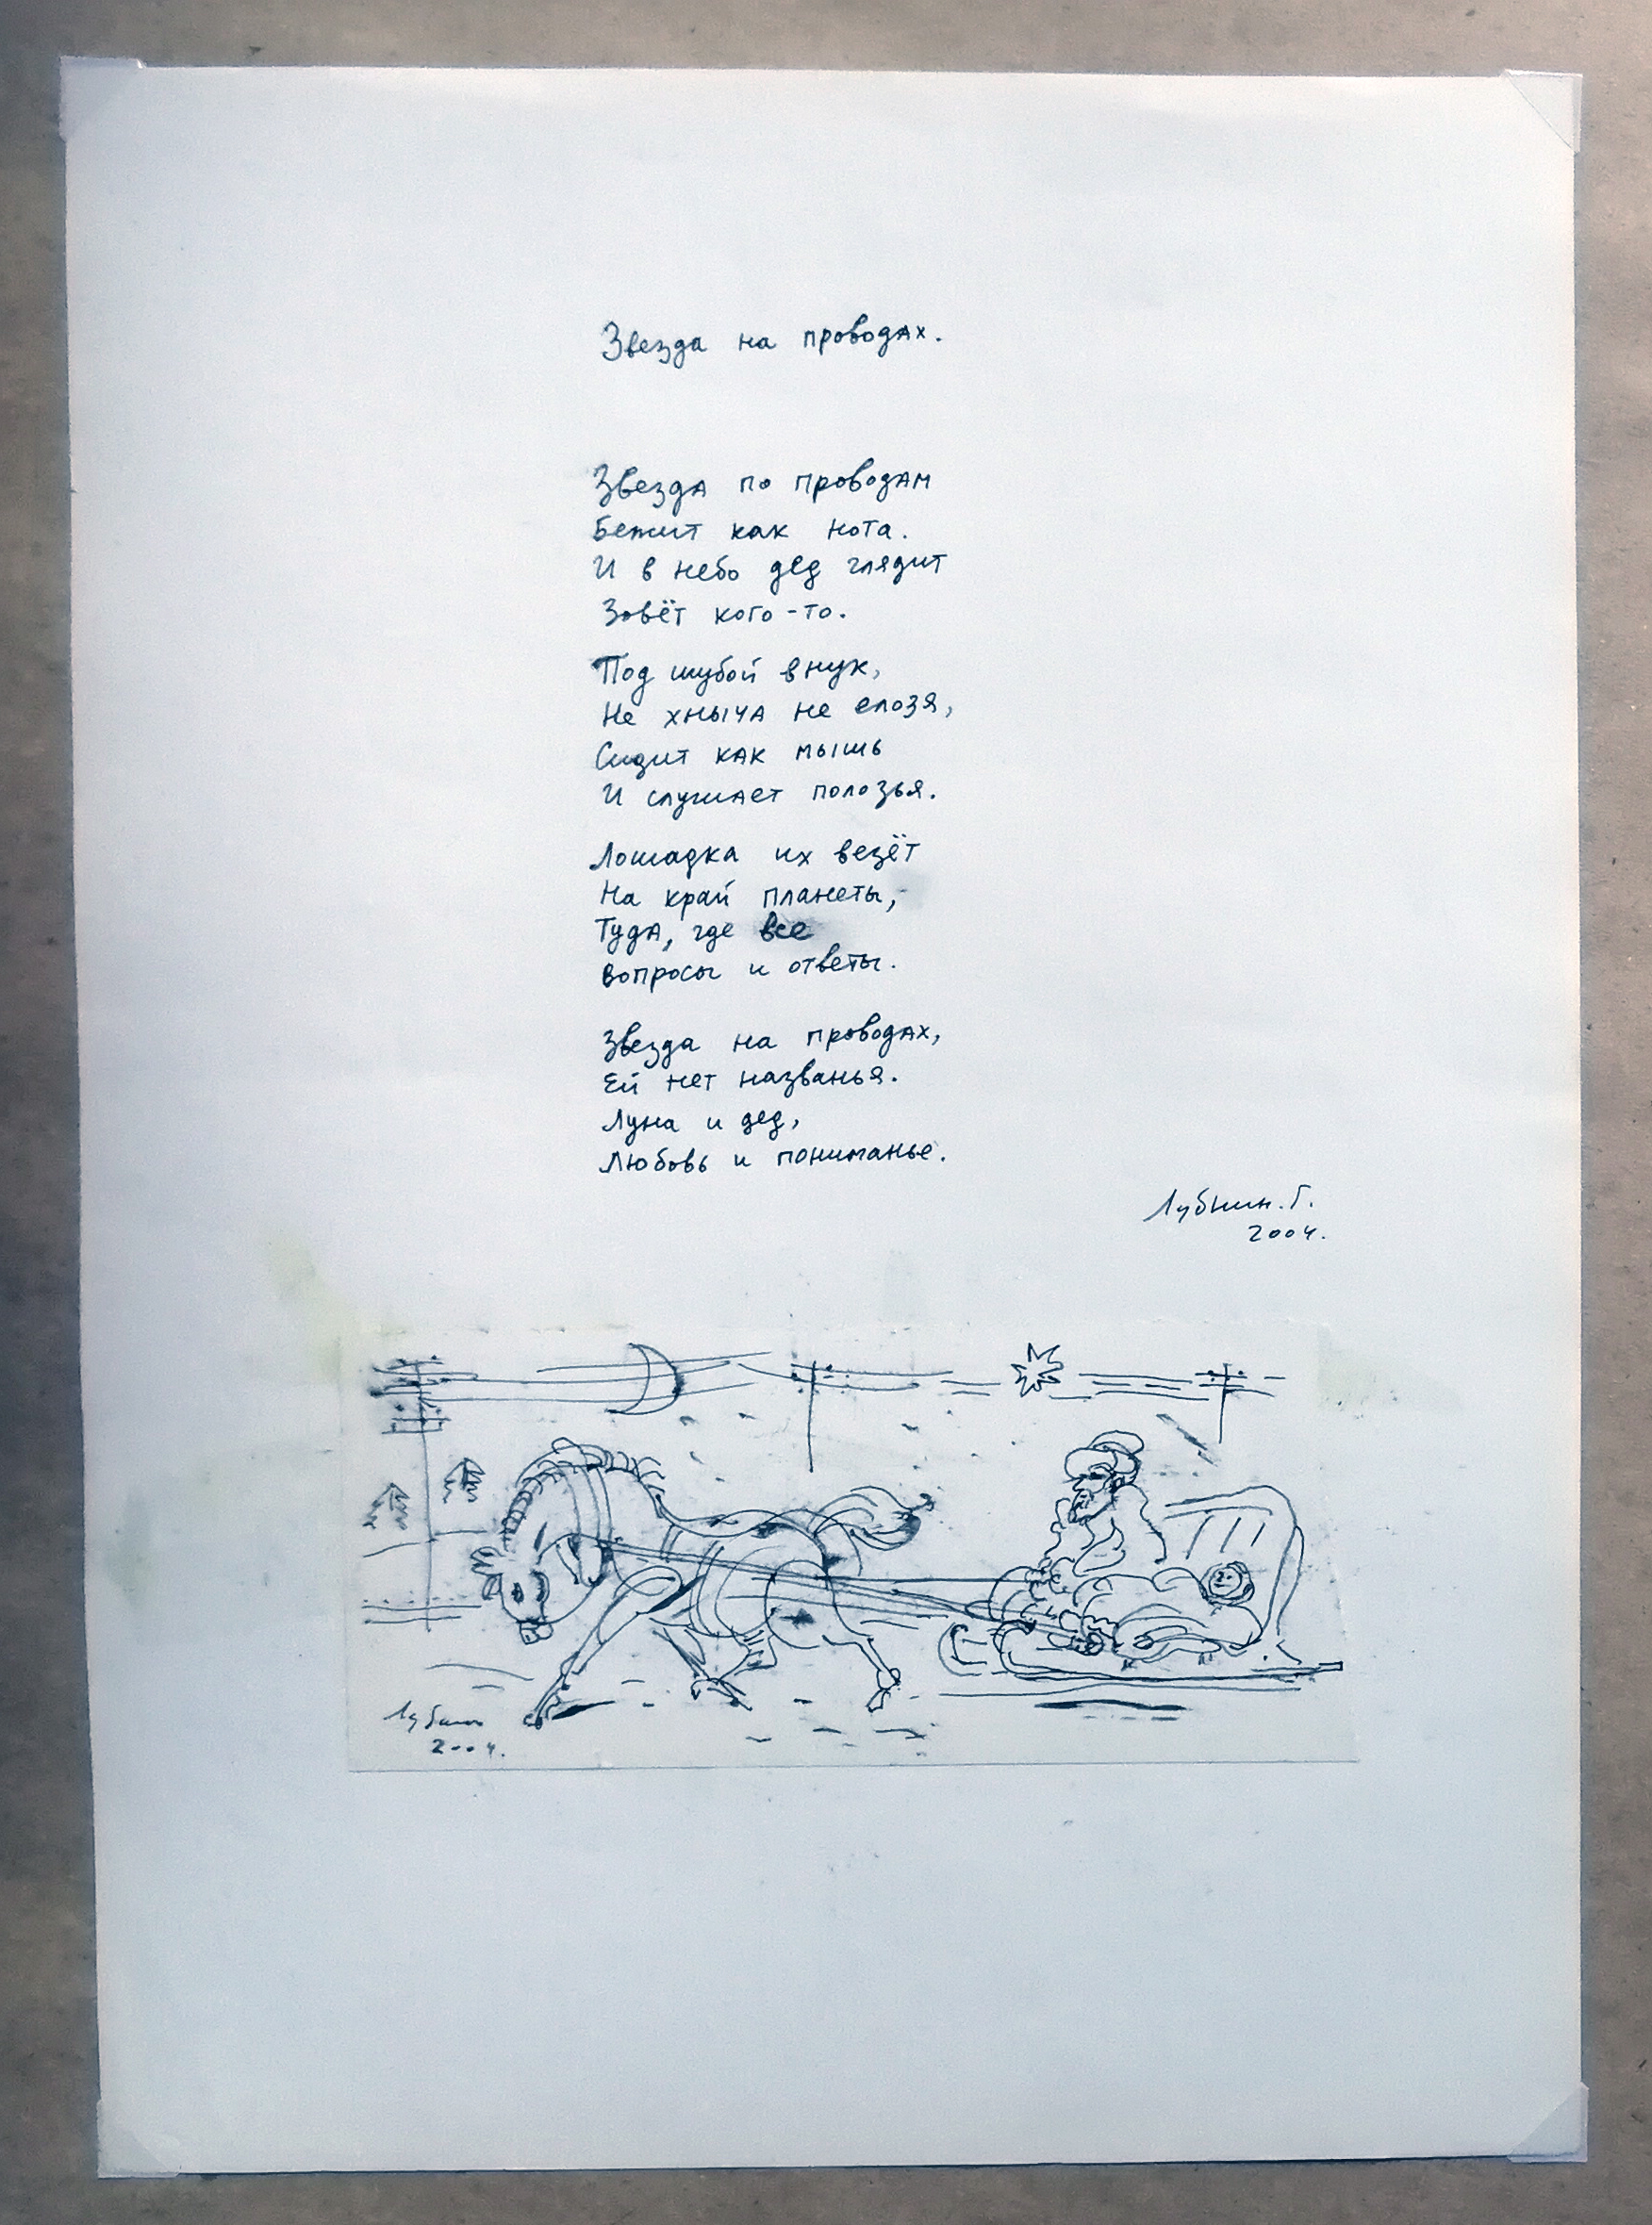 Звезда на проводах.
Звезда по проводам
Бежит как нота.
И в небо дед глядит
Зовёт кого-то.
Под шубой внук,
Не хныча не елозя,
Сидит как мышь
И слушает полозья.
Лошадка их везёт
На край планеты,
Туда, где все
вопросы и ответы.
Звезда на проводах,
Ей нет названья.
Луна и дед,
Любовь и пониманье.
Лубнин. Г.
2004.
Лубнин
2004.